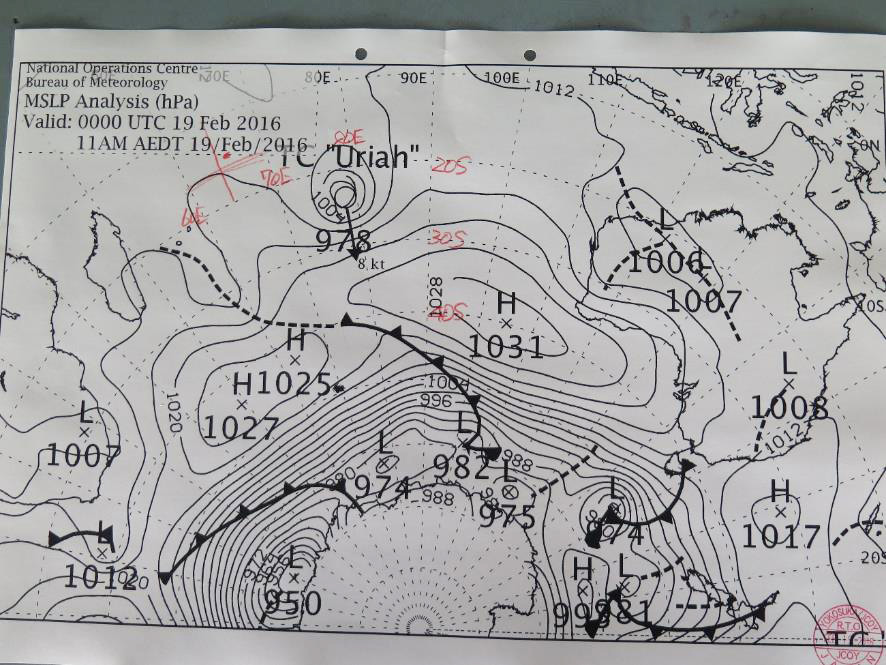 National Operations Centre
Bureau of Meteorology
MSLP Analysis (hPa)
Valid: 0000 UTC 19 Feb 2016
11AM AEDT 19/Feb/2016
70E
80E
90E
100E
110E
120E
1012
1012
0N
TC "Uriah"
80E
20S
70E
60E
1004
978
8 kt
30S
L
1006
1007
1028
40S
H
1031
10S
H
H1025
1027
1020
1004
996
L
1008
1012
L
1007
L
982
988
L
974
988
L
975
L
974
H
1017
20S
L
1012
1020
L
950
H
L
981
YOKOSUKA
R.T.O
JCOY
TC